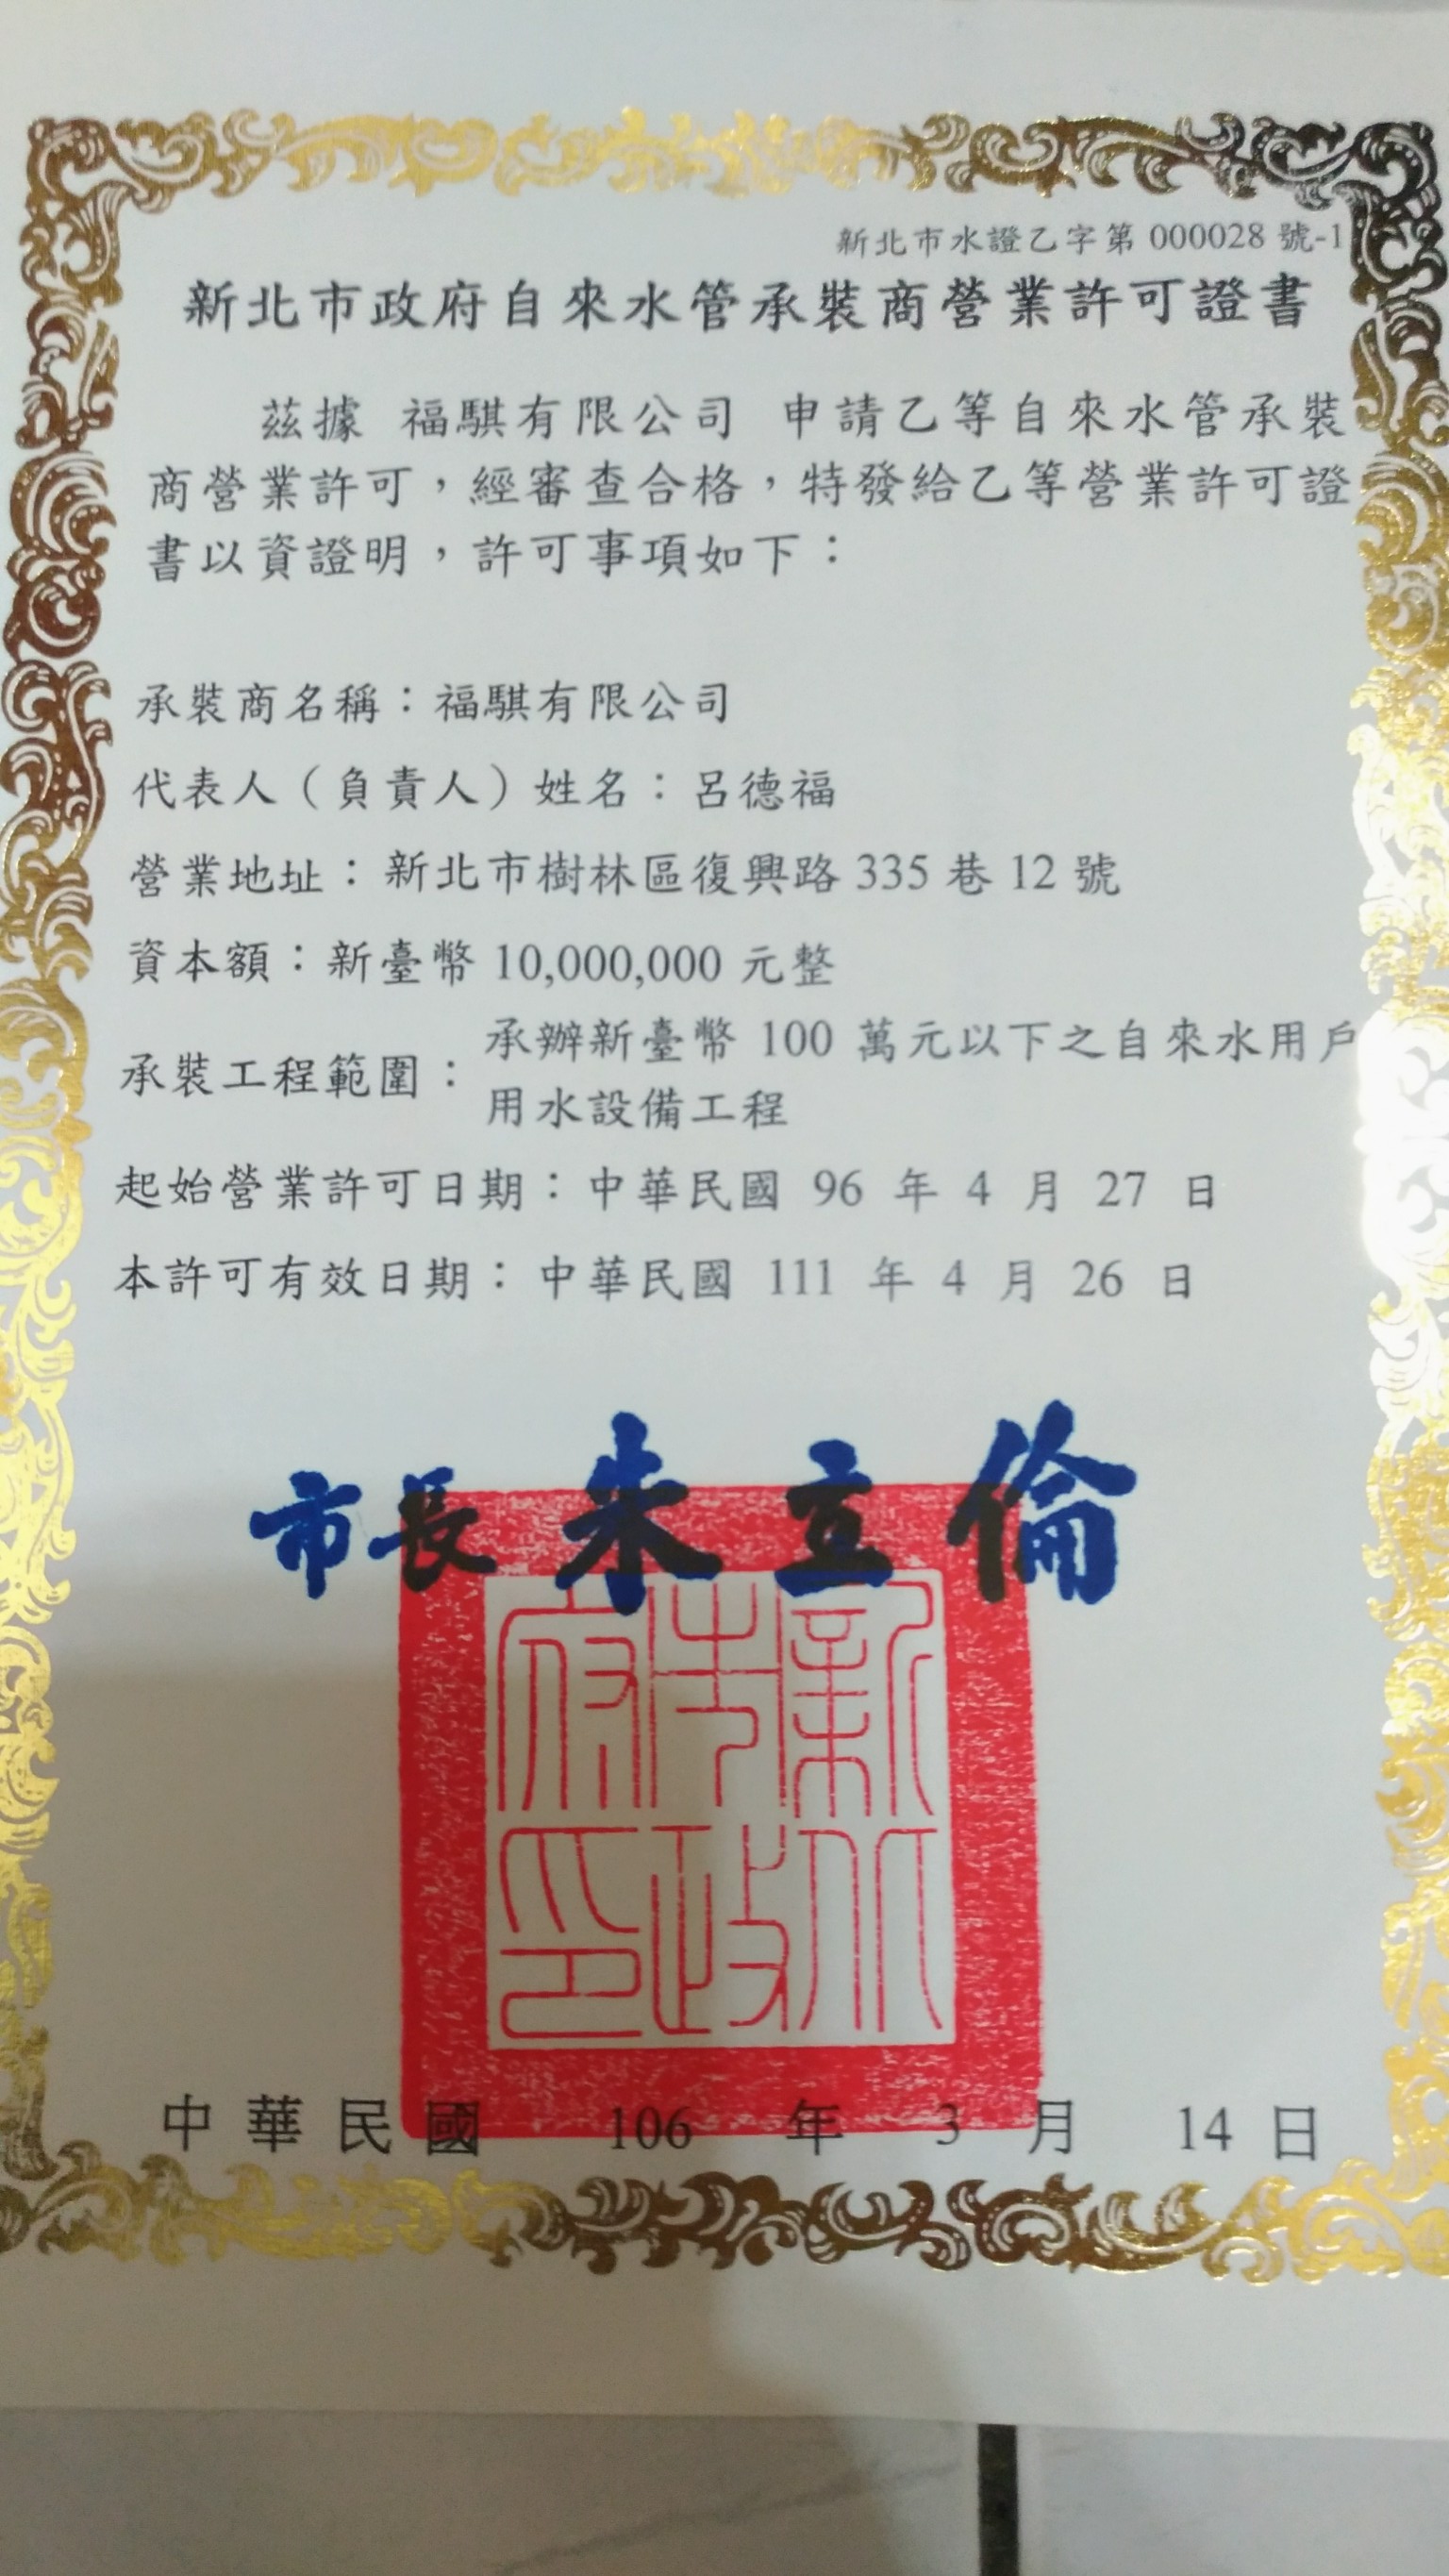 新北市水證乙字第 000028 號-1
新北市政府自來水管承裝商營業許可證書
茲據 福騏有限公司 申請乙等自來水管承裝
商營業許可，經審查合格，特發給乙等營業許可證
書以資證明，許可事項如下：
承裝商名稱：福騏有限公司
代表人（負責人）姓名：呂德福
營業地址：新北市樹林區復興路 335 巷 12 號
資本額：新臺幣 10,000,000 元整
承裝工程範圍：承辦新臺幣 100 萬元以下之自來水用戶
用水設備工程
起始營業許可日期：中華民國 96 年 4 月 27 日
本許可有效日期：中華民國 111 年 4 月 26 日
市長 朱立倫
新北市政府印
中華民國 106 年 3 月 14 日